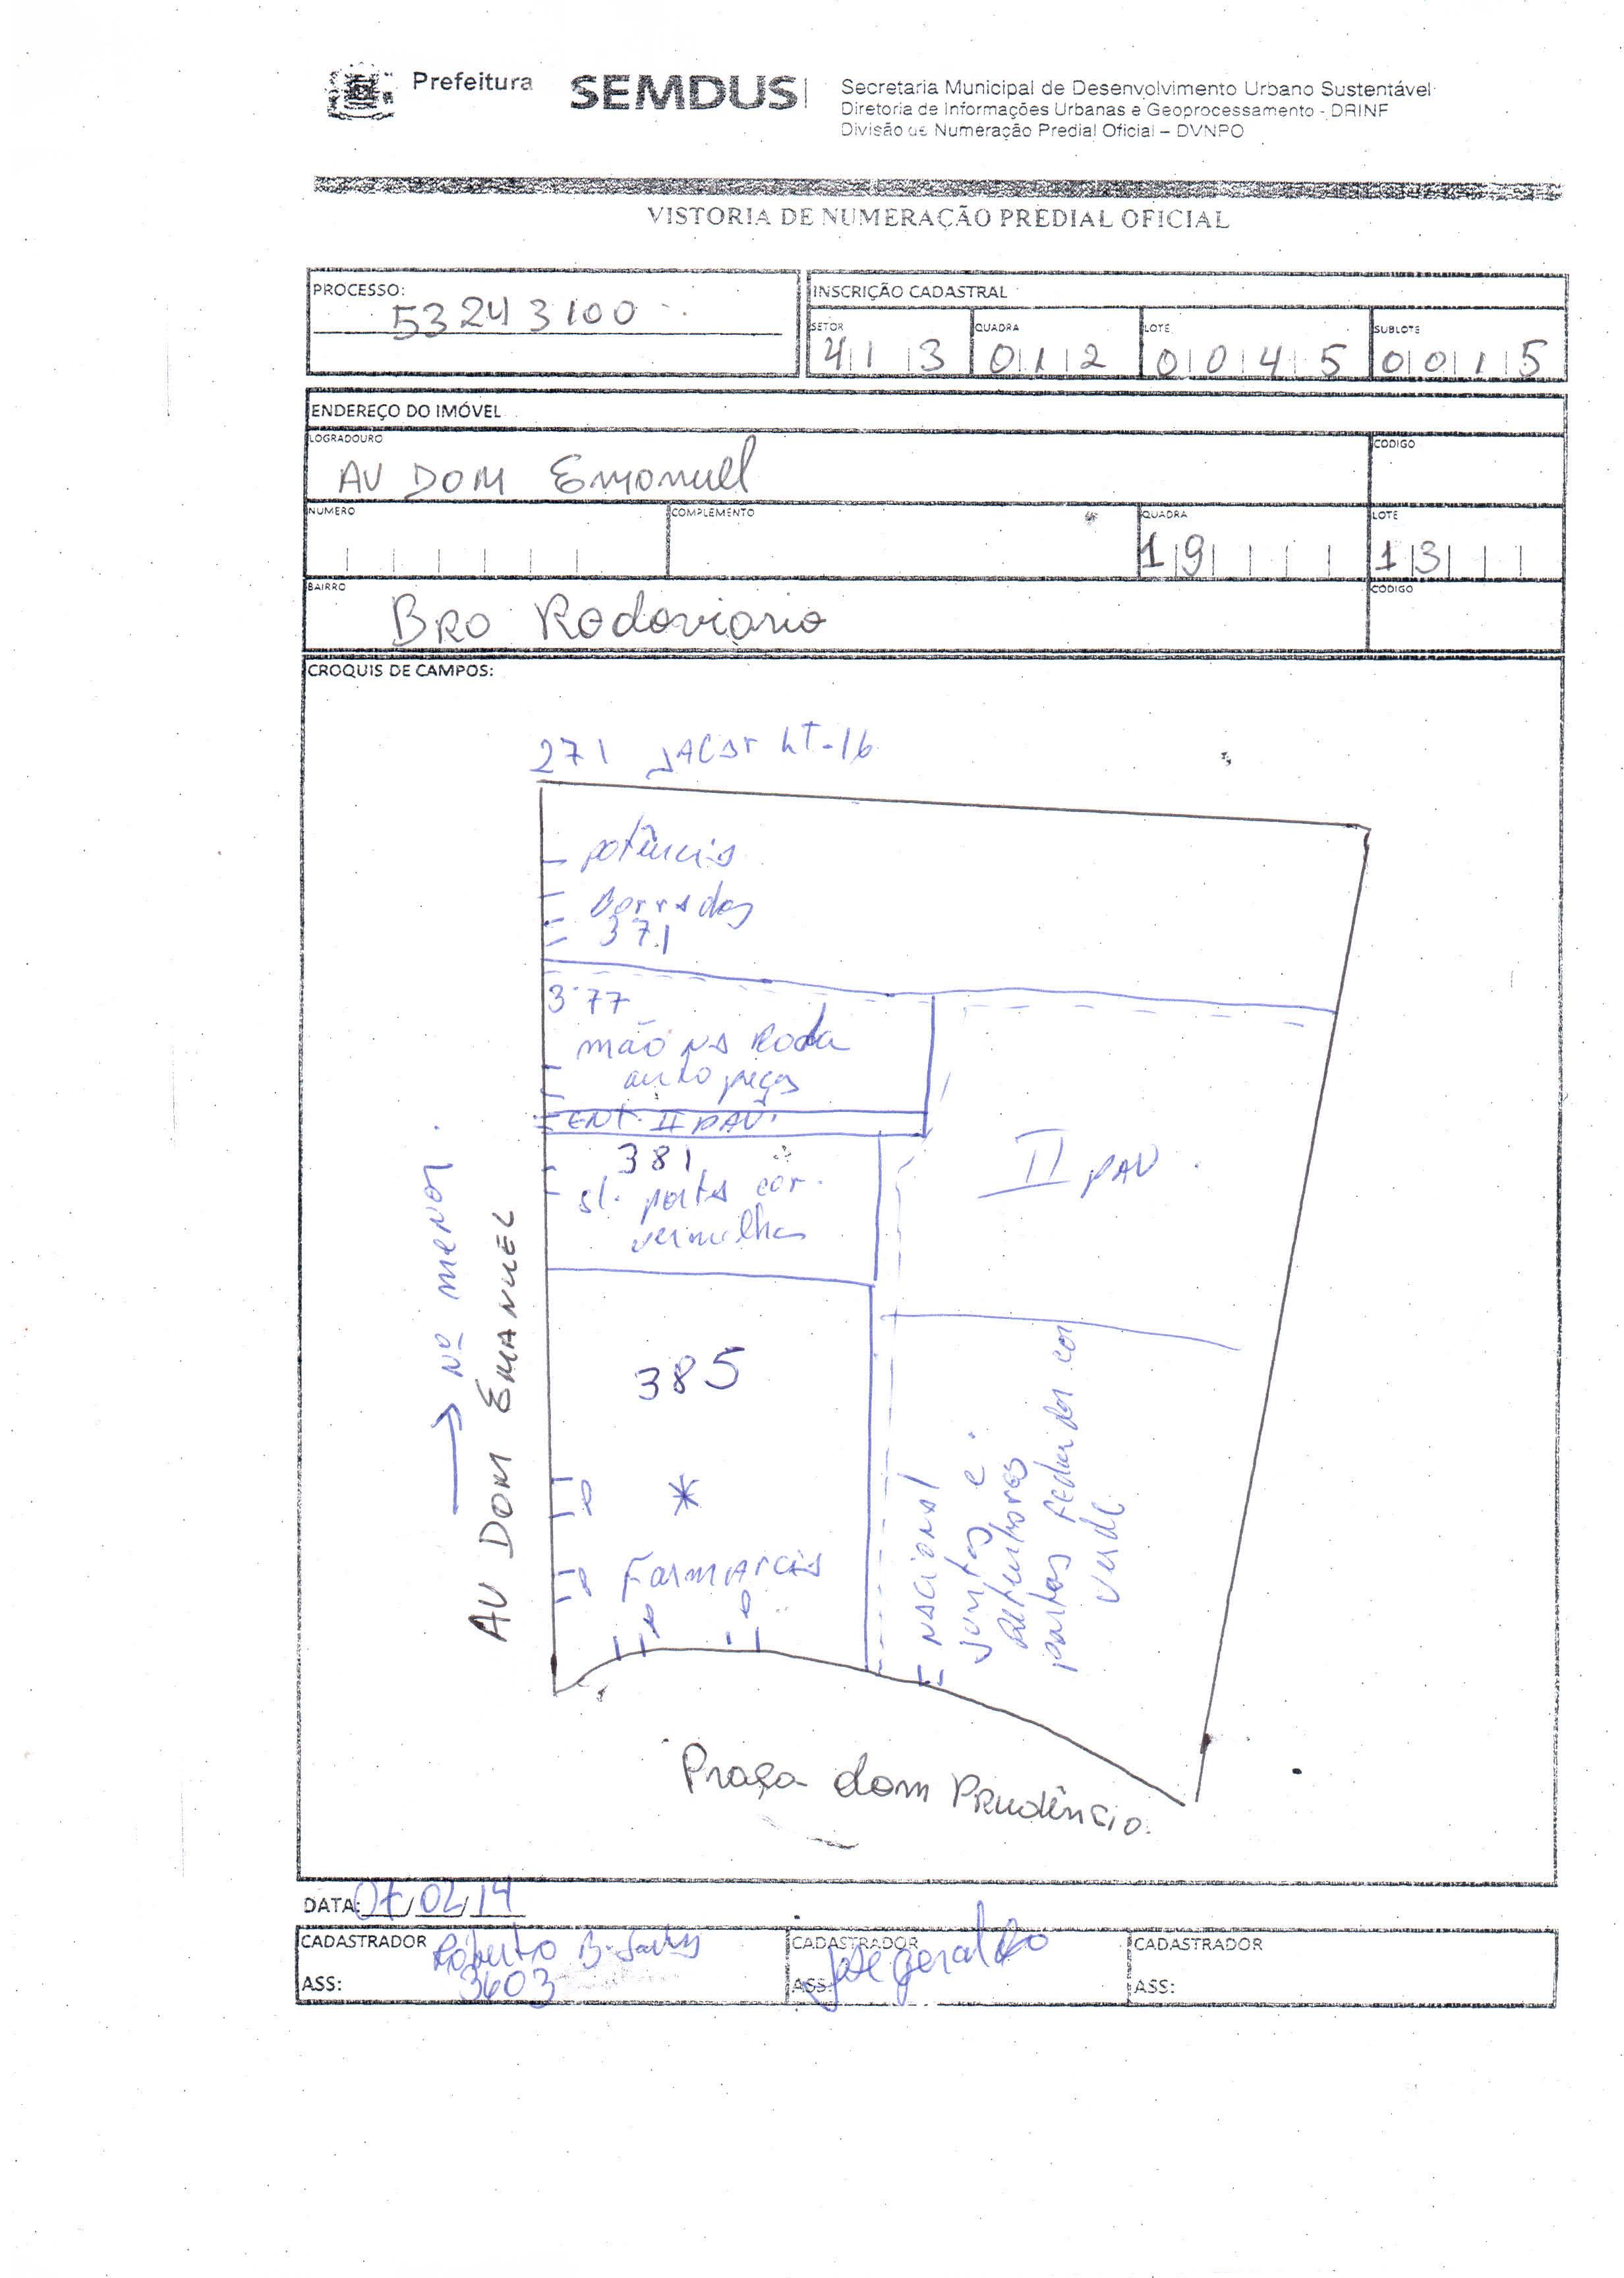 Prefeitura SEMDUS
Secretaria Municipal de Desenvolvimento Urbano Sustentável
Diretoria de Informações Urbanas e Geoprocessamento - DRINF
Divisão de Numeração Predial Oficial – DVNPO
VISTORIA DE NUMERAÇÃO PREDIAL OFICIAL
PROCESSO:
53243100
INSCRIÇÃO CADASTRAL
SETOR QUADRA LOTE SUBLOTE
413 012 0045 0015
ENDEREÇO DO IMÓVEL
LOGRADOURO CODIGO
AV DOM Emanuel
NUMERO COMPLEMENTO QUADRA LOTE
19 13
BAIRRO CODIGO
BRO Rodoviario
CROQUIS DE CAMPOS:
271 LT-16
potência
Borrachas
371
377
mão na Roda
auto peças
ENT. II PAV.
381
sl. porta cor
vermelha
II PAV.
Nº menor.
AV DOM EMANUEL
385
*
Farmarcia
Nacional
juntas e
retentores
portas fechada cor
verde
Praça dom Prudêncio.
DATA: 07/02/14
CADASTRADOR Roberto B. CADASTRADOR CADASTRADOR
ASS: 3603 ASS: José geraldo ASS: